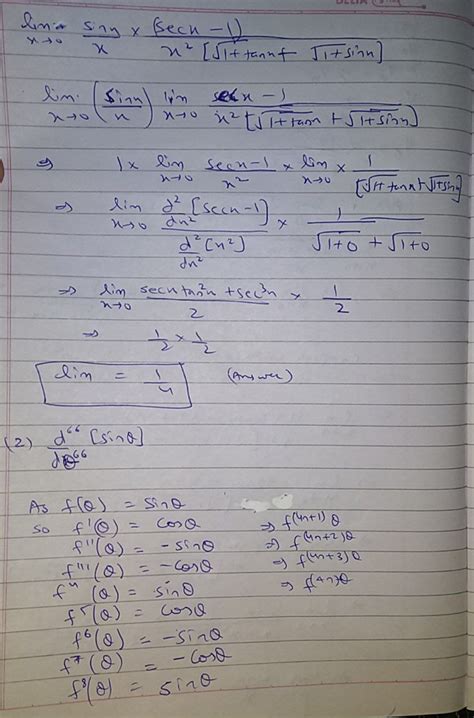 DELTA
lim x→0 sinx/x × (secx - 1)/x² [√1+tanx + √1+sinx]
lim x→0 (sinx/x) lim x→0 secx - 1/x² [√1+tanx + √1+sinx]
⇒ 1 × lim x→0 secx-1/x² × lim x→0 × 1/[√1+tanx + √1+sinx]
⇒ lim x→0 d²/dx² [secx-1] / d²/dx² [x²] × 1/√1+0 + √1+0
⇒ lim x→0 secx tan²x + sec³x/2 × 1/2
⇒ 1/2 × 1/2
lim = 1/4 (Answer)
(2) d⁶⁶/dθ⁶⁶ [sinθ]
As f(θ) = sinθ
so f'(θ) = cosθ ⇒ f(4n+1)θ
f''(θ) = -sinθ ⇒ f(4n+2)θ
f'''(θ) = -cosθ ⇒ f(4n+3)θ
f⁴(θ) = sinθ ⇒ f(4n)θ
f⁵(θ) = cosθ
f⁶(θ) = -sinθ
f⁷(θ) = -cosθ
f⁸(θ) = sinθ